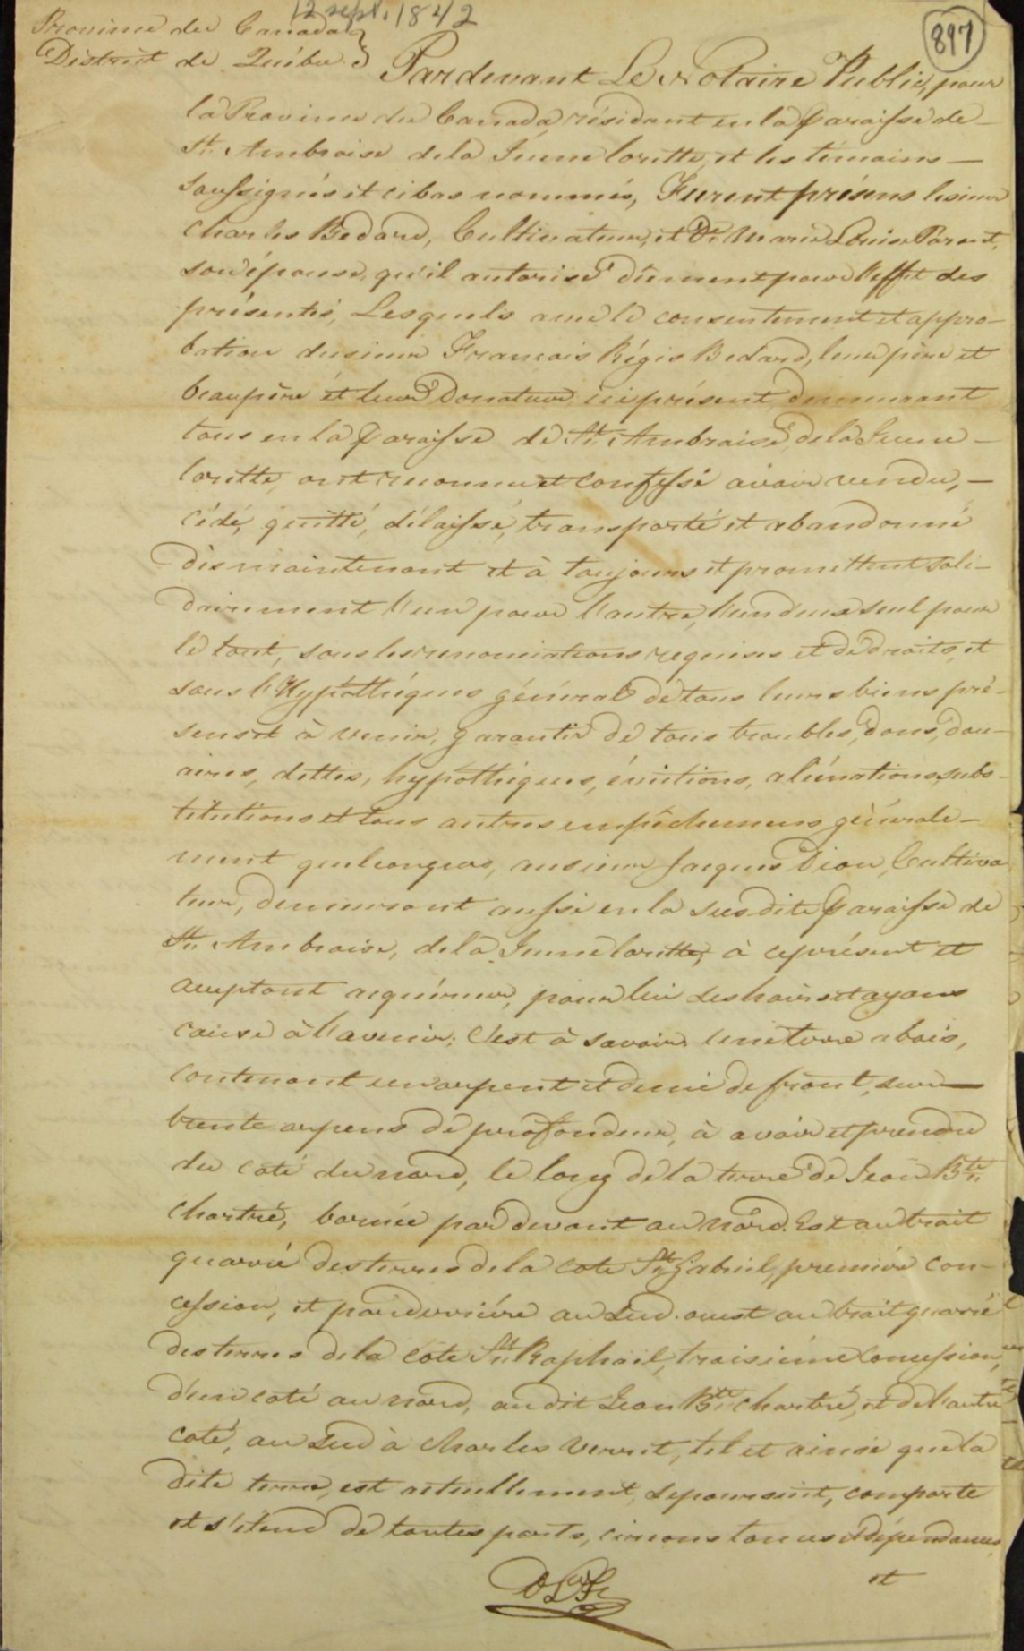 12 sept. 1842
897
Province du Canada
District de Québec
Pardevant Le Notaire Public, pour
la Province du Canada, résidant en la Paroisse de
St. Ambroise de la Jeune lorette, et les témoins
Soussignés et ci bas nommés, Furent présens le sieur
Charles Bedard, Cultivateur, et De. Marie Louise Parant,
son épouse, qu'il autorise dûment pour l'effet des
présentes, Lesquels avec le consentement et appro-
bation du sieur François Régis Bedard, leur père et
beaupère et leur Donateur ici présent demeurant
tous en la Paroisse de St. Ambroise, de la Jeune
lorette, ont reconnu et confessé avoir vendu,
cédé, quitté, délaissé, transporté et abandonné
dès maintenant et à toujours et promettent soli-
dairement l'un pour l'autre, l'un d'eux seul pour
le tout, sous les renonciations requises et de droits, et
sous l'Hypothéques général de tous leurs biens pré-
sens et à venir, garantir de tous troubles, dons, dou-
aires, dettes, hypothéques, évictions, aliénations, subs-
titutions et tous autres empêchemens générale-
ment quelconques, au sieur Jacques Dion, Cultiva-
teur, demeurant aussi en la susdite Paroisse de
St. Ambroise, de la Jeune lorette, à ce présent et
acceptant acquéreur, pour lui ses hoirs et ayans
cause à l'avenir; C'est à savoir. Une terre a bois,
contenant un arpent et demi de front, sur
trente arpens de profondeur, à avoir et prendre
du coté du nord, le long de la terre de Jean Bte.
Chartré, bornée par devant au Nord. Est au trait
quarré des terres de la cote St. Gabriel, première con-
cession, et par derrière au Sud. ouest au trait quarré
des terres de la côte St. Raphaël, troisième Concession,
d'un coté au nord, au dit Jean Bte. Chartré, et de l'autre
coté, au Sud à Charles Verret, tel et ainsi que la
dite terre, est actuellement, se poursuit, comporte
et s'étend de toutes parts, circonstances et dépendances
et